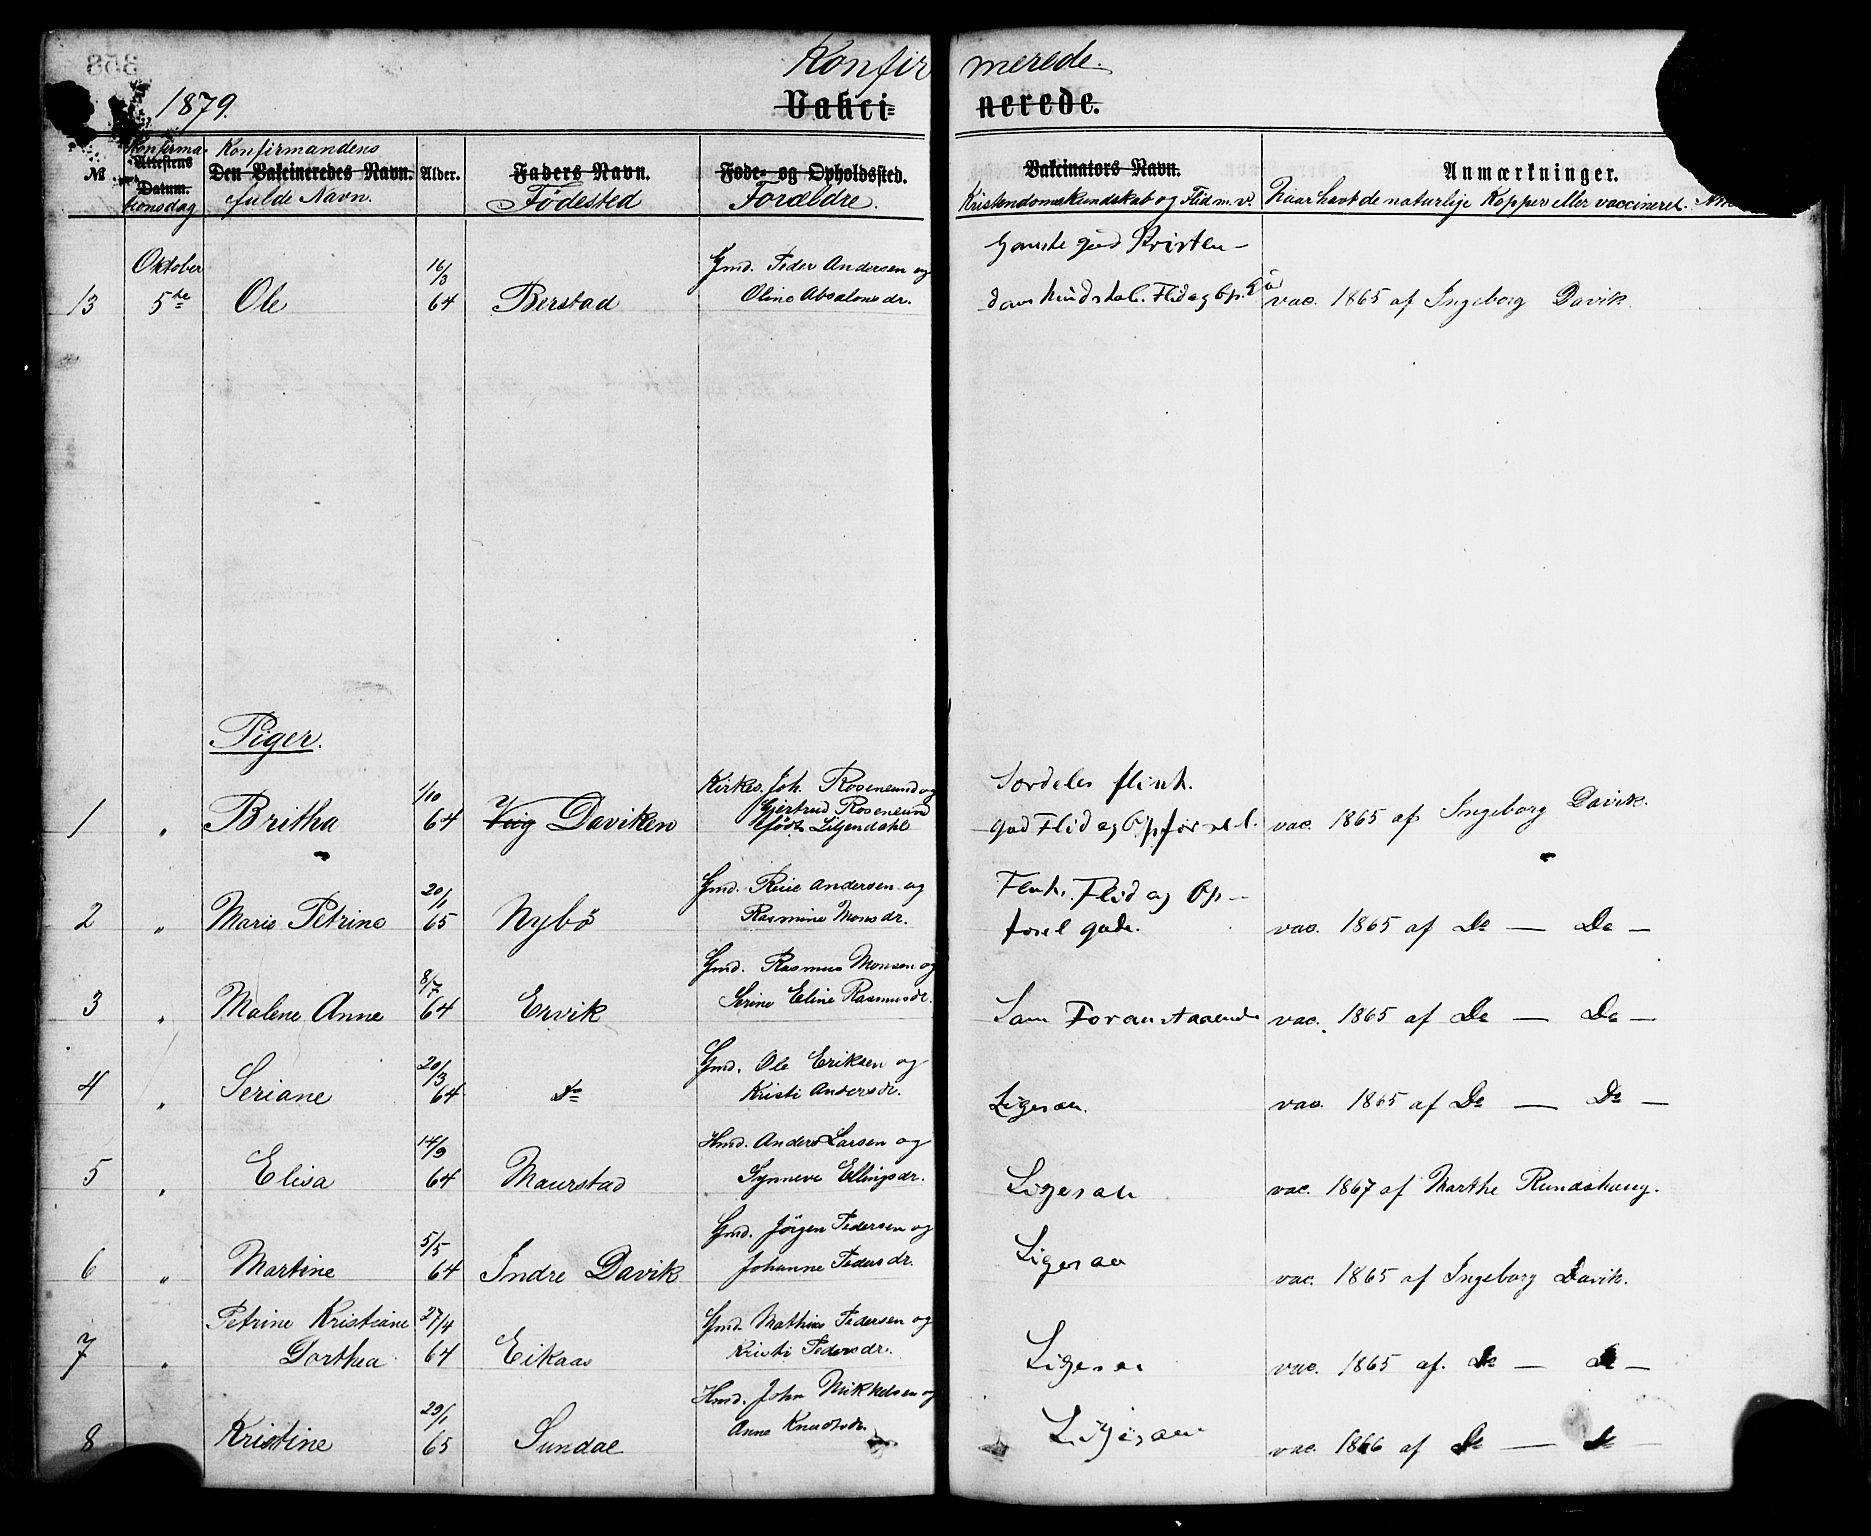 Konfirmerede.
1879.
Vakcinerede.
Konfirma- Konfirmandens
№ Attestens Datum. Den Vakcineredes Navn. Alder. Faders Navn. Føde- og Opholdssted. Vakcinators Navn. Anmærkninger.
tionsdag fulde Navn. Fødested Forældre. Kristendomskundskab og Flid m. v. Naar havt de naturlige Kopper eller vaccineret.
Oktober 16/3 Gmd. Peder Andersen og Ganske god Kristen-
13 5te Ole 64 Berstad Oline Absalonsdr. domskundskab. Flid og Op. g. vac. 1865 af Ingeborg Davik.
Piger.
1/10 Kirkes. Joh. Rosenlund og Særdeles flink.
1 " Britha 64 Vaag Daviken Gjertrud Rosenlund god Flid og Opførsel. vac. 1865 af Ingeborg Davik.
født Liljendahl
20/1 Gmd. Andersen og Flink. Flid og Op-
2 " Marie Petrine 65 Nybö Rasmine Monsdr. førsel gode. vac. 1865 af Do — Do —
8/7 Gmd. Rasmus Monsen og
3 " Malene Anne 64 Ervik Serine Eline Rasmusdr. Som Foranstaaende vac. 1865 af Do — Do —
20/3 Gmd. Ole Eriksen og
4 " Seriane 64 Do Kristi Andersdr. Ligesaa. vac. 1865 af Do — Do —
14/9 Hmd. Anders Larsen og
5 " Elisa 64 Maurstad Synneve Ellingsdr. Ligesaa vac. 1867 af Marthe Rundehaug.
5/5 Gmd. Jörgen Pedersen og
6 " Martine 64 Indre Davik Johanne Pedersdr. Ligesaa vac. 1865 af Ingeborg Davik.
Petrine Kristiane 27/4 Gmd. Mathias Pedersen og
7 " Dorthea 64 Eikaas Kristi Pedersdr. Ligesaa vac. 1865 af. Do — Do —
29/1 Hmd. John Mikkelsen og
8 Kristine 65 Sundal Anne Knudsdr. Ligesaa vac. 1866 af Do — Do —